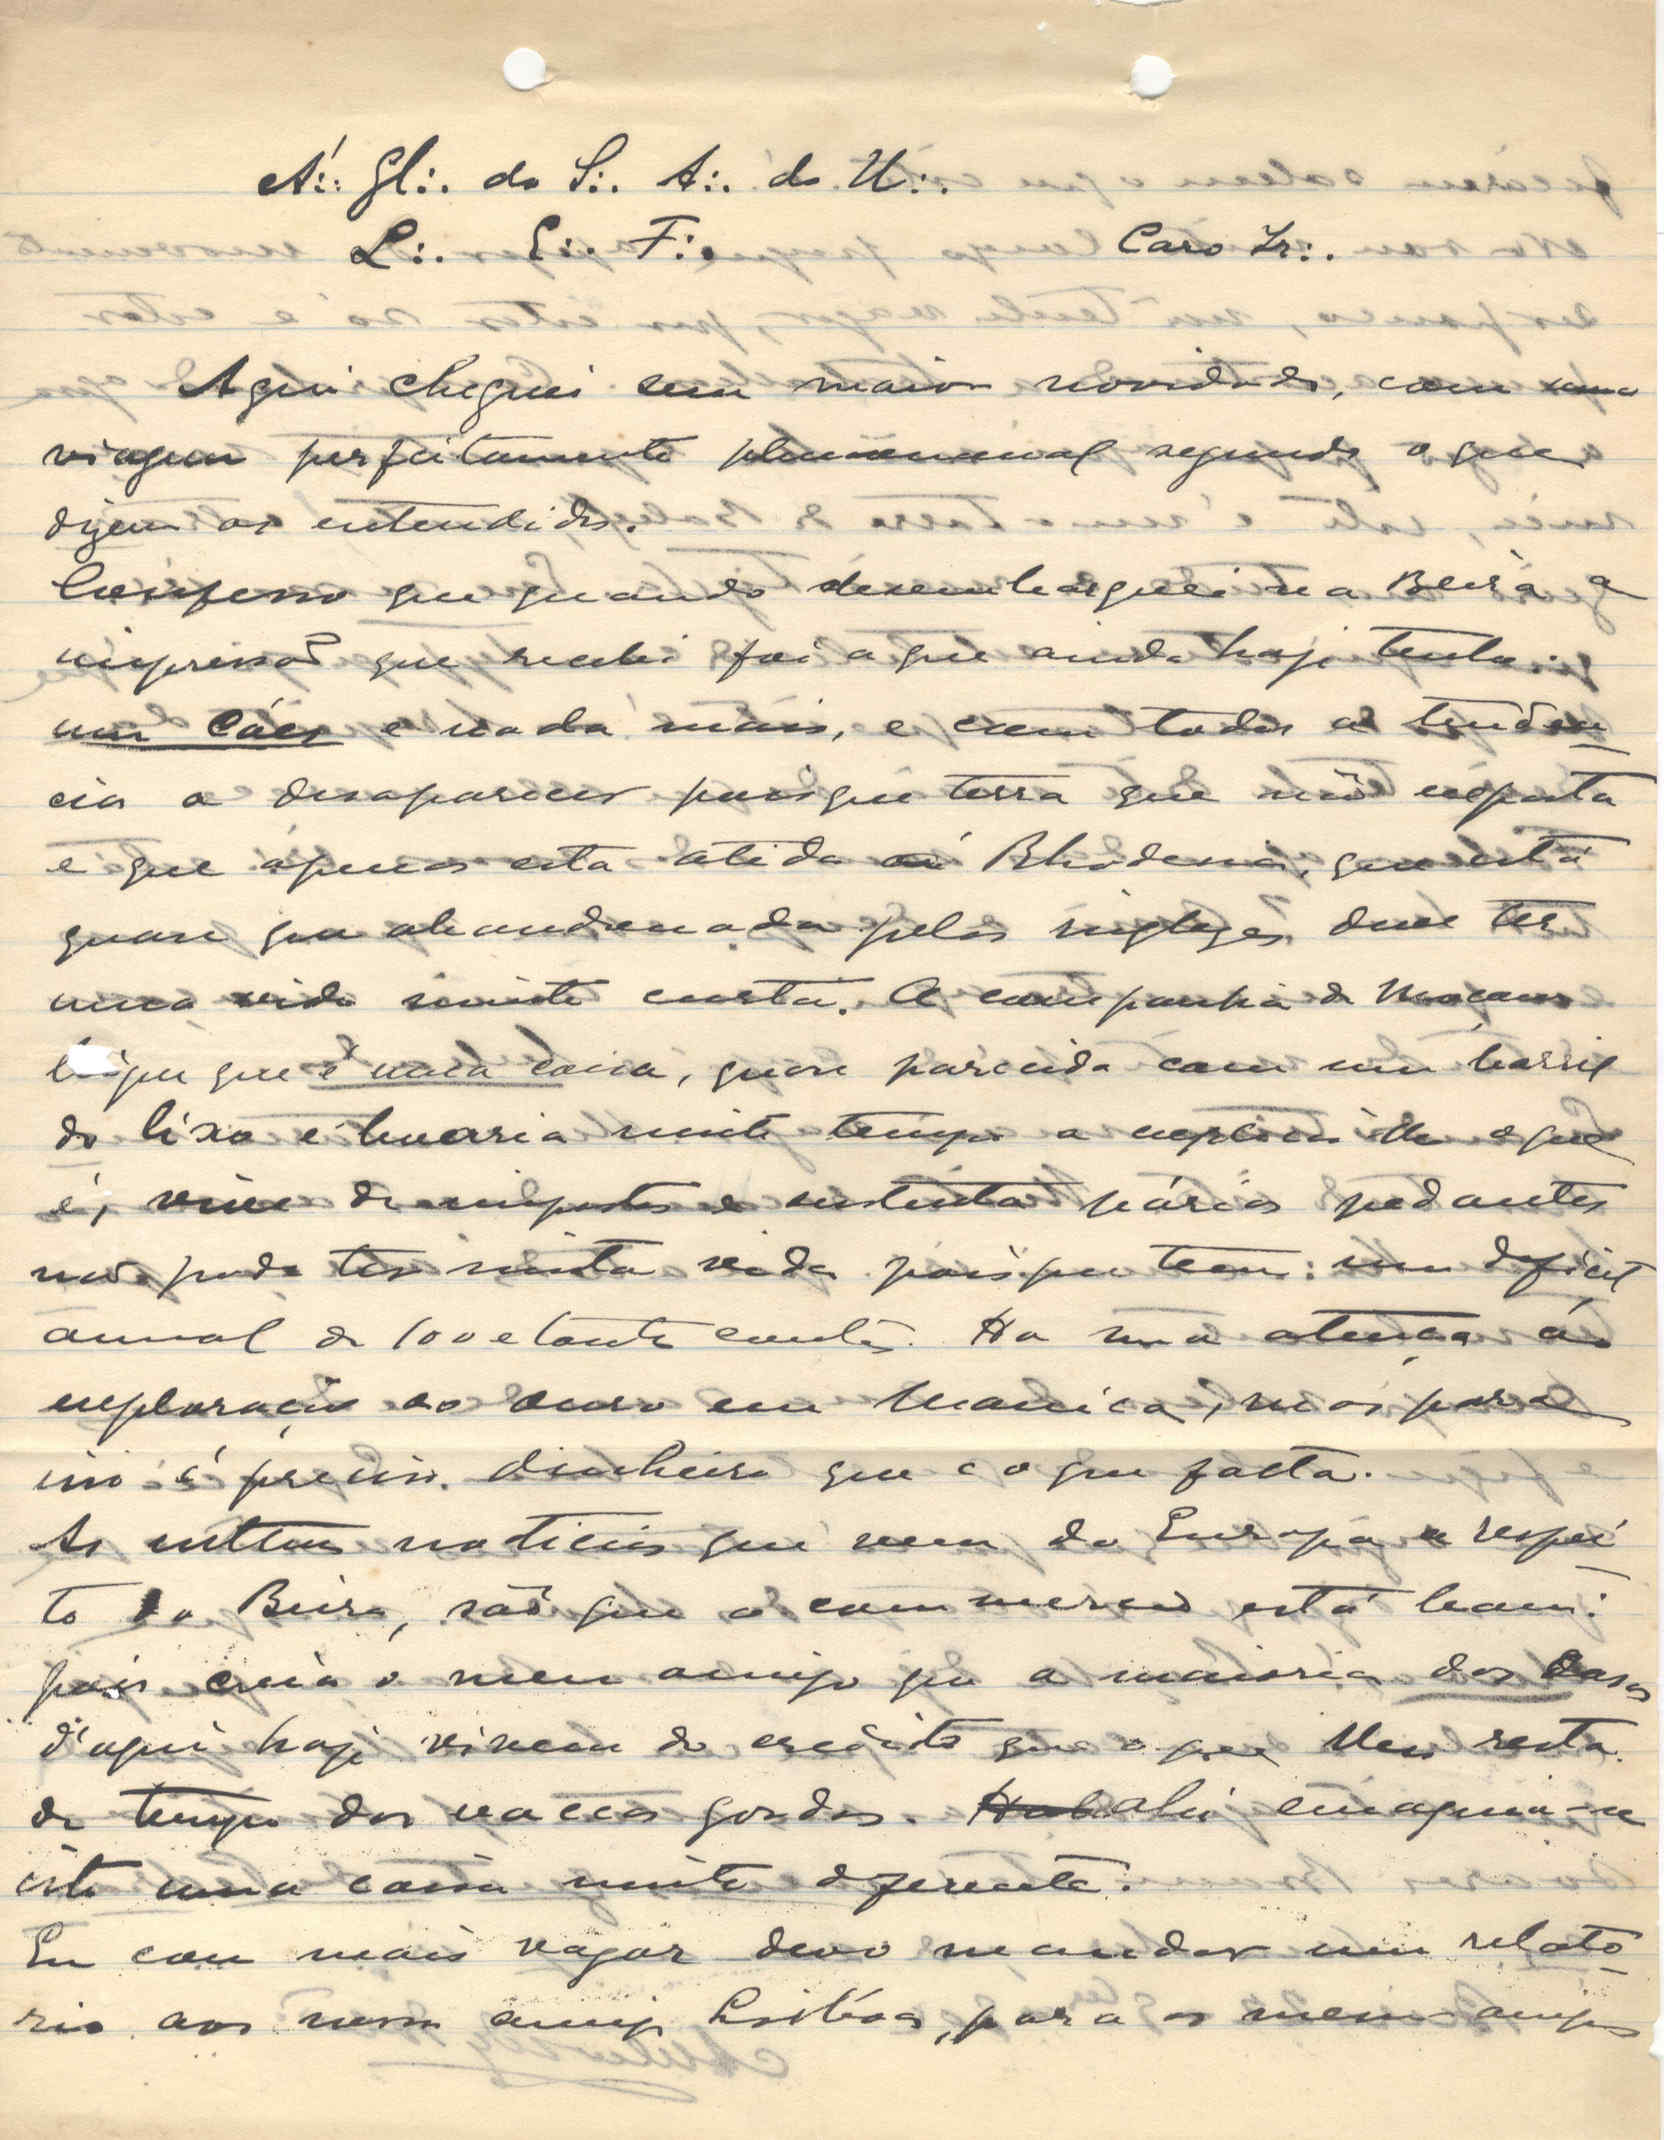 Á:. Gl:. do S:. A:. do U:.
L:. E:. F:. Caro Ir:.
Aqui cheguei sem maior novidade, com uma
viagem perfeitamente phenomenal segundo o que
dizem os entendidos.
Confesso que quando desembarquei na Beira a
impressão que recebi foi a que ainda hoje tenho.
um cáes e nada mais, e com todas as tenden
cia a desaparecer pois que terra que não exporta
e que apenas esta atida á Rhodesia, que está
quasi que abandonada pelos inglezes deve ter
uma vida muito curta. A companhia de Mocam
bique que é uma coisa, quasi parecida com um barril
do lixo e levaria muito tempo a explicar-lhe o que
é, vive de impostos e sustenta párias pedantes
não pode ter muita vida pois que tem: um deficit
annual de 100 e tantos contos. Ha uma atença á
exploração do ouro em Manica, mas para
isso é preciso dinheiro que é o que falta.
As ultimas noticias que vem da Europa a respei
to da Beira, são que o commercio está bom:
pois creia o meu amigo que a maioria das casas
d'aqui hoje vivem do credito que o que lhes resta
do tempo das vaccas gordas. ahi emagina-se
isto uma coisa muito diferente.
Eu com mais vagar devo mandar um relato
rio aos nossos amigos Lisbôa, para os meus amigos